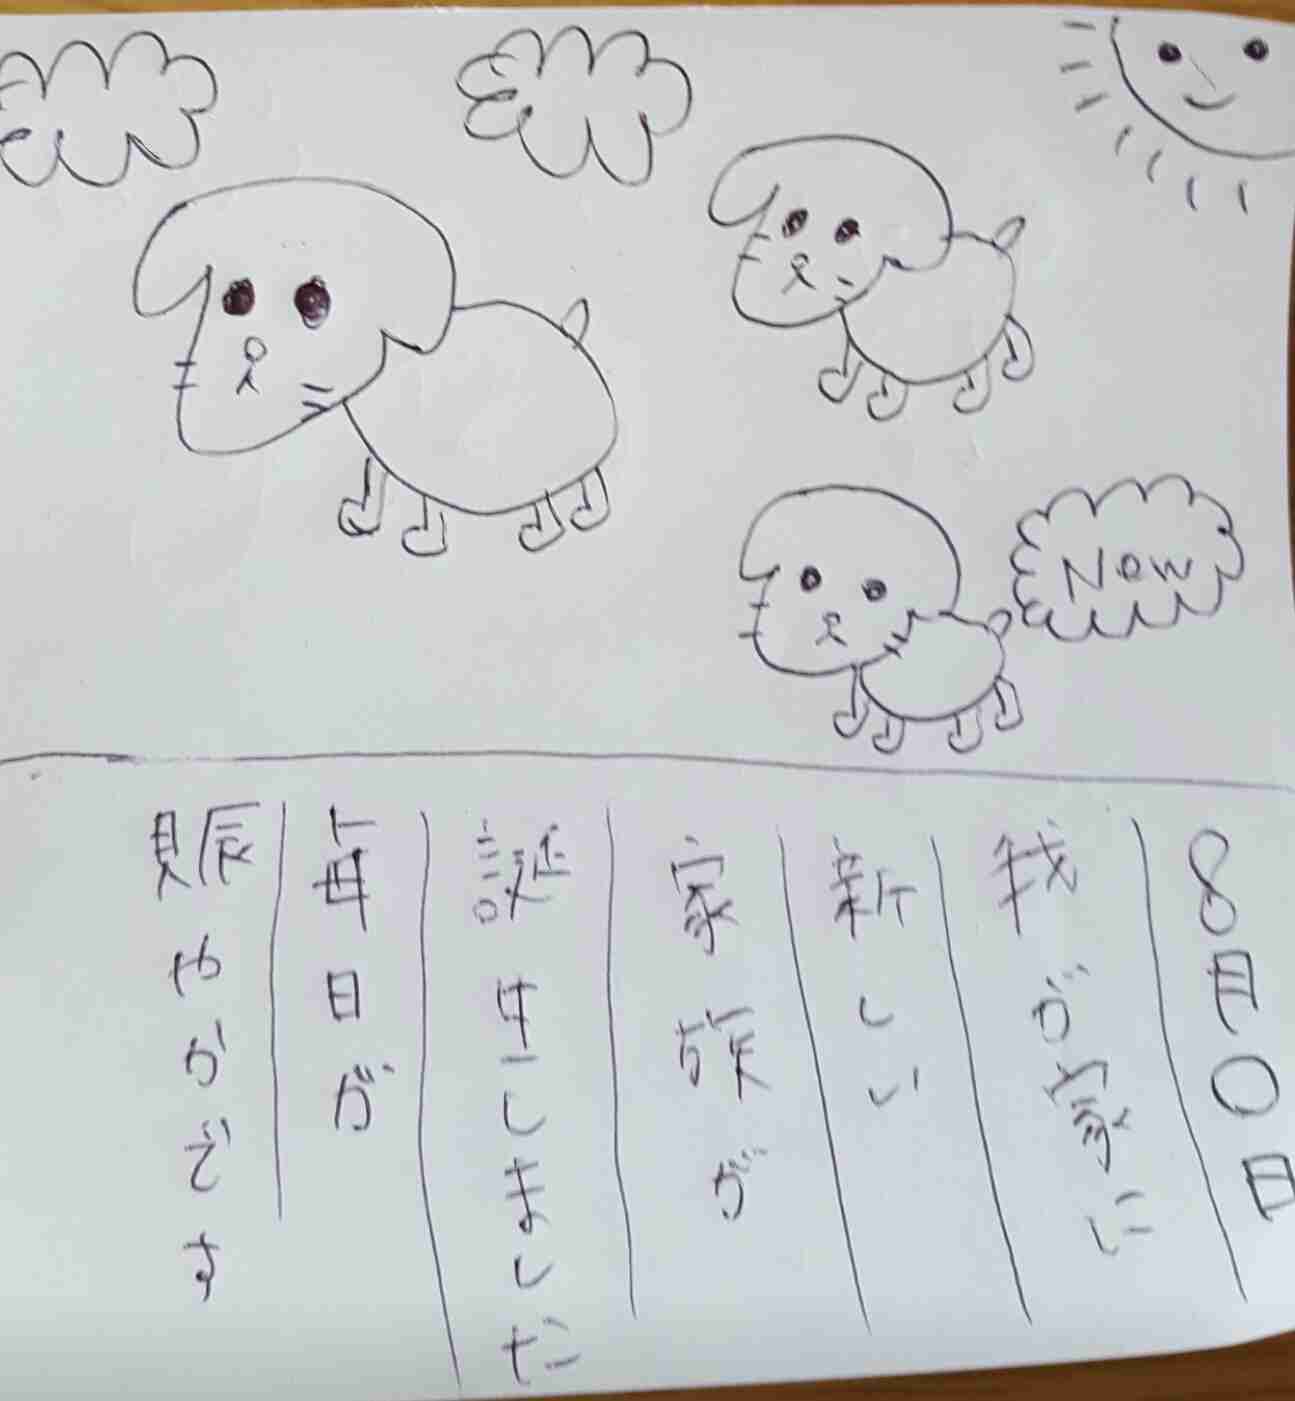 New
8月〇日
我が家に
新しい
家族が
誕生しました
毎日が
賑やかです